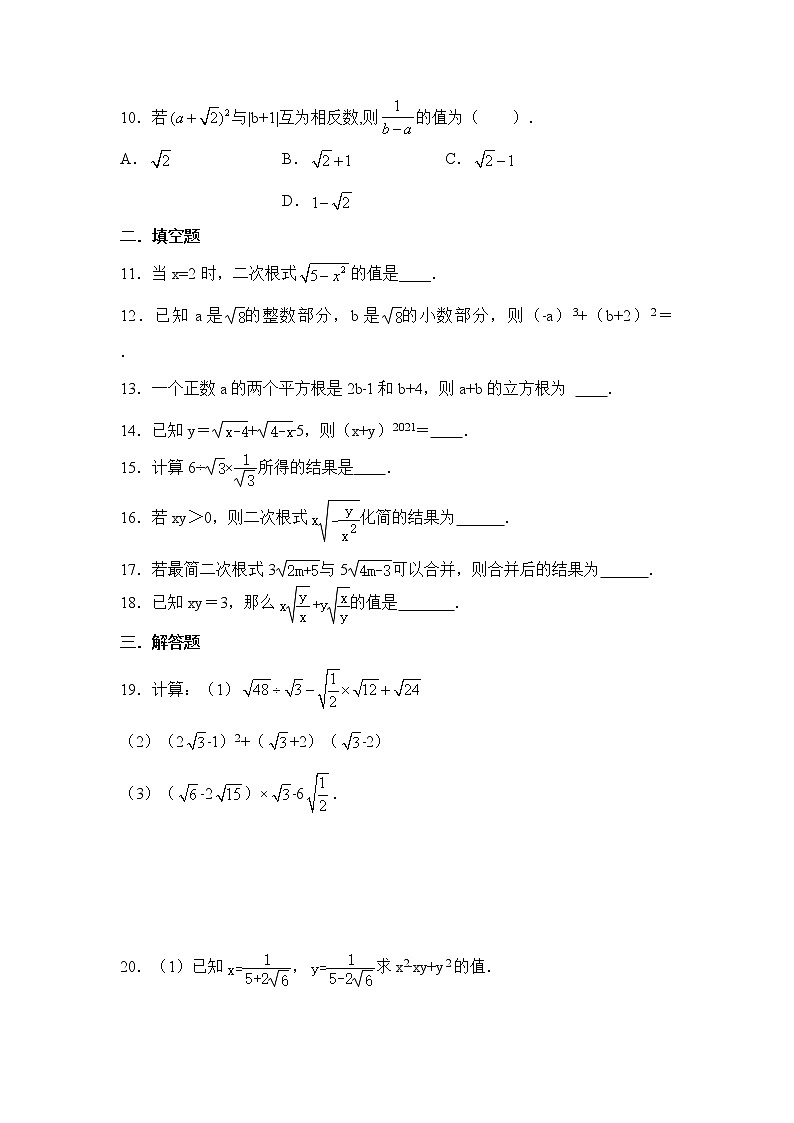 10．若(a+√2)²与|b+1|互为相反数,则1/(b−a)的值为（　　）．
A．√2　　B．√2+1　　C．√2−1
D．1−√2
二．填空题
11．当x=2时，二次根式√(5−x²)的值是____．
12．已知a是√8的整数部分，b是√8的小数部分，则（-a）³+（b+2）²＝
．
13．一个正数a的两个平方根是2b-1和b+4，则a+b的立方根为 ____．
14．已知y＝√(x-4)+√(4-x)-5，则（x+y）²⁰²¹＝____．
15．计算6÷√3×1/√3所得的结果是____．
16．若xy＞0，则二次根式x√(-y/x²)化简的结果为______．
17．若最简二次根式3√(2m+5)与5√(4m-3)可以合并，则合并后的结果为______．
18．已知xy＝3，那么x√(y/x)+y√(x/y)的值是_______．
三．解答题
19．计算：（1）√48÷√3−√(1/2)×√12+√24
（2）（2√3-1）²+（√3+2）（√3-2）
（3）（√6-2√15）×√3-6√(1/2)．
20．（1）已知x=1/(5+2√6)，y=1/(5-2√6)求x²-xy+y²的值．